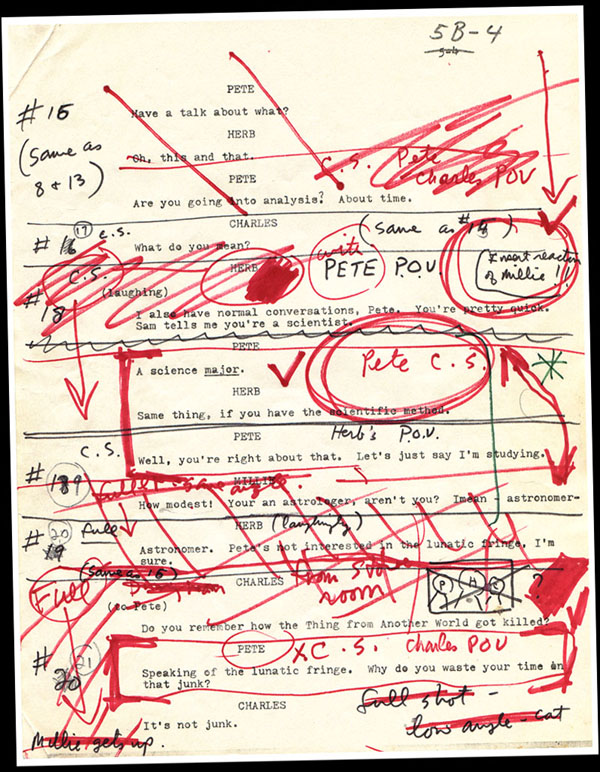 5B-4
PETE
#15
Have a talk about what?
HERB
(same as
8 & 13)
Oh, this and that.
C.S. Pete
Charles POV
PETE
Are you going into analysis? About time.
CHARLES
(same as #15)
17 C.S.
#16
What do you mean?
with
PETE P.O.V.
Insert reaction
of Millie!!
C.S.
HERB
(laughing)
#18
I also have normal conversations, Pete. You're pretty quick.
Sam tells me you're a scientist.
PETE
Pete C.S.
A science major.
HERB
Same thing, if you have the scientific method.
PETE
Herb's P.O.V.
C.S.
Well, you're right about that. Let's just say I'm studying.
MILLIE
full - same angle.
#19
How modest! Your an astrologer, aren't you? Imean - astronomer-
20 full
HERB (laughingly)
#19
Astronomer. Pete's not interested in the lunatic fringe. I'm
sure.
(same as 15)
CHARLES
from
room
P H C ?
Full
(to Pete)
Do you remember how the Thing from Another World got killed?
PETE
X C.S. Charles POV
21
#20
Speaking of the lunatic fringe. Why do you waste your time on
that junk?
CHARLES
full shot -
low angle - cat
It's not junk.
Millie gets up.